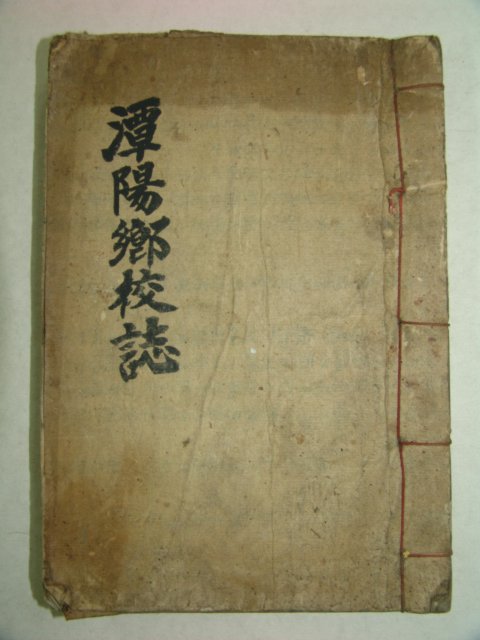 潭陽鄕校誌